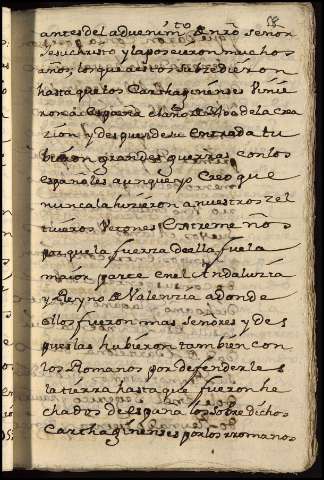 58
antes del advenimto de nro Señor
Jesuchristo y la poseieron muchos
años, los que a estos subzedieron
hasta que los Carthaginenses vinie
ron a España el año de de la Crea
zion y despues de su entrada tu
bieron grandes guerras con los
españoles aunque yo creo que
nunca la hizieron a nuestros zel
tiueros Vetones Estremeños
porque la fuerza de ella fue la
maior parte en el Andaluzia
y Reyno de Valenzia a donde
ellos fueron mas señores y des
pues las hubieron tambien con
los Romanos por defenderles
la tierra hasta que fueron he
chados de España los sobre dichos
Carthaginenses por los rromanos